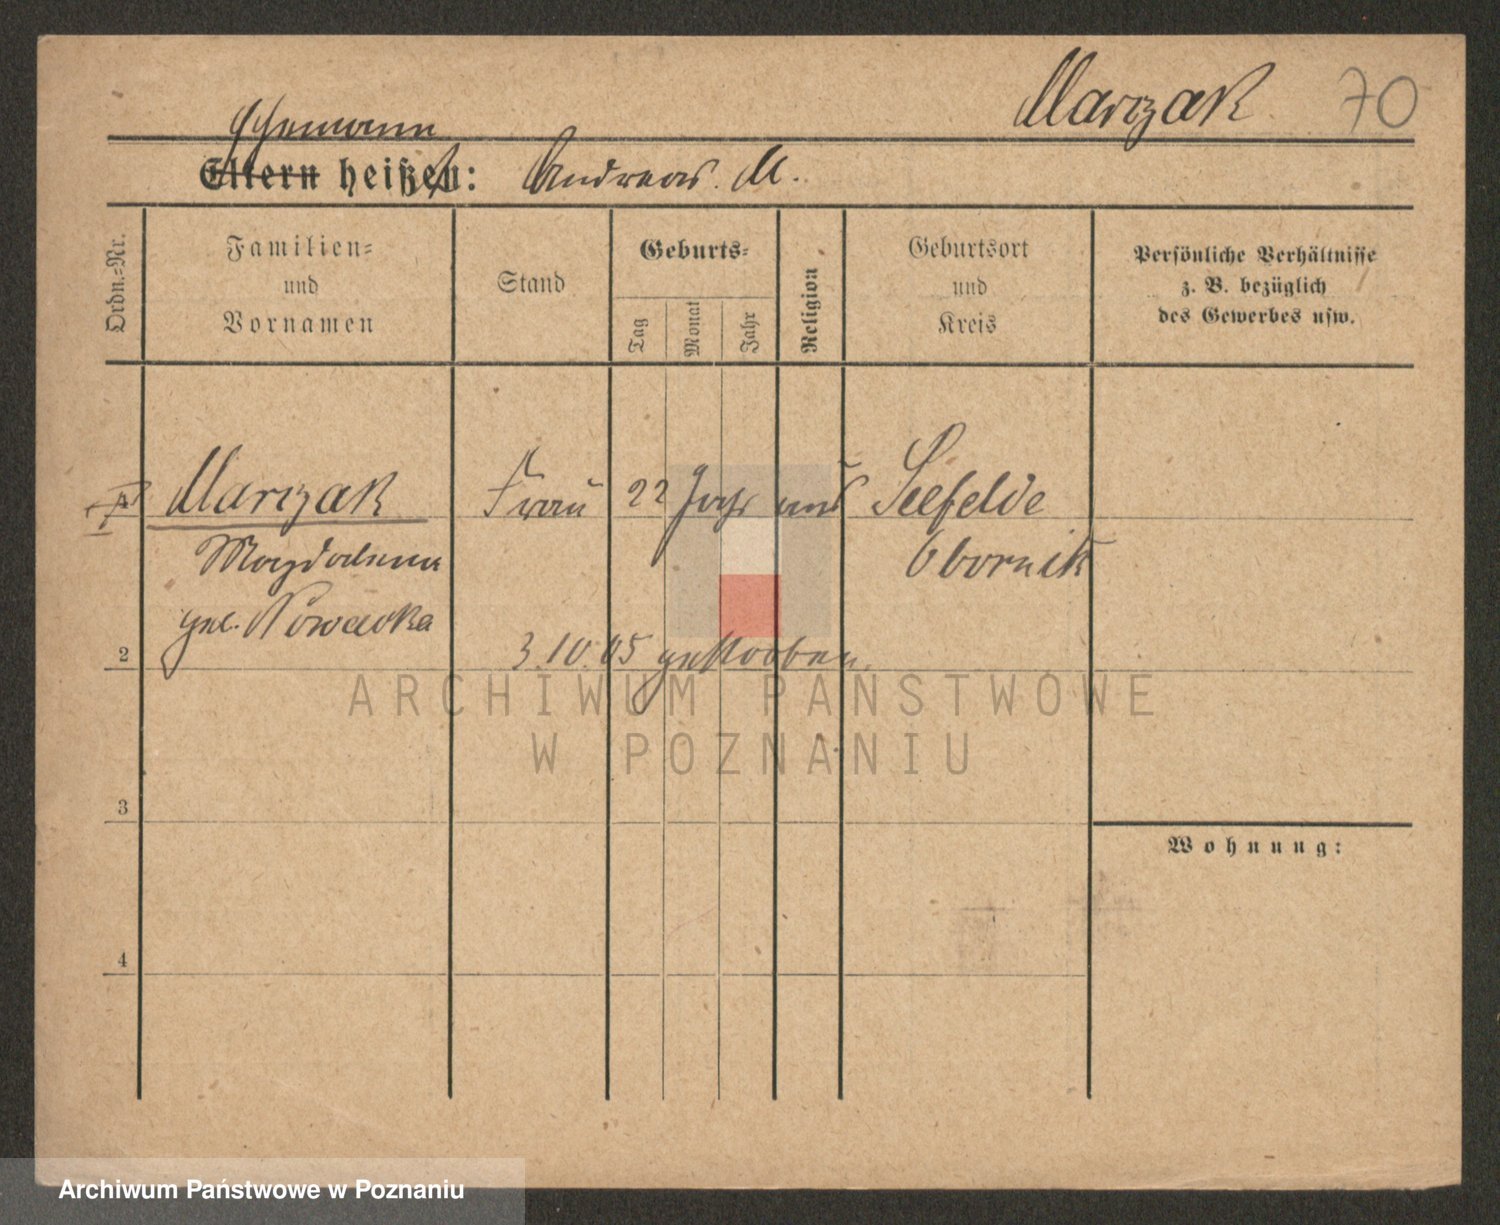 Marczak 70
Ehemann
Eltern heißen: Andreas M.
Ordn.-Nr.
Familien-
und
Vornamen
Stand
Geburts-
Tag
Monat
Jahr
Religion
Geburtsort
und
Kreis
Persönliche Verhältnisse
z. B. bezüglich
des Gewerbes usw.
Marczak Frau 22 Jahr aus Seefelde
Magdalena Obornik
geb. Nowacka
2 3.10.05 gestorben.
ARCHIWUM PAŃSTWOWE
W POZNANIU
3
Wohnung:
4
Archiwum Państwowe w Poznaniu